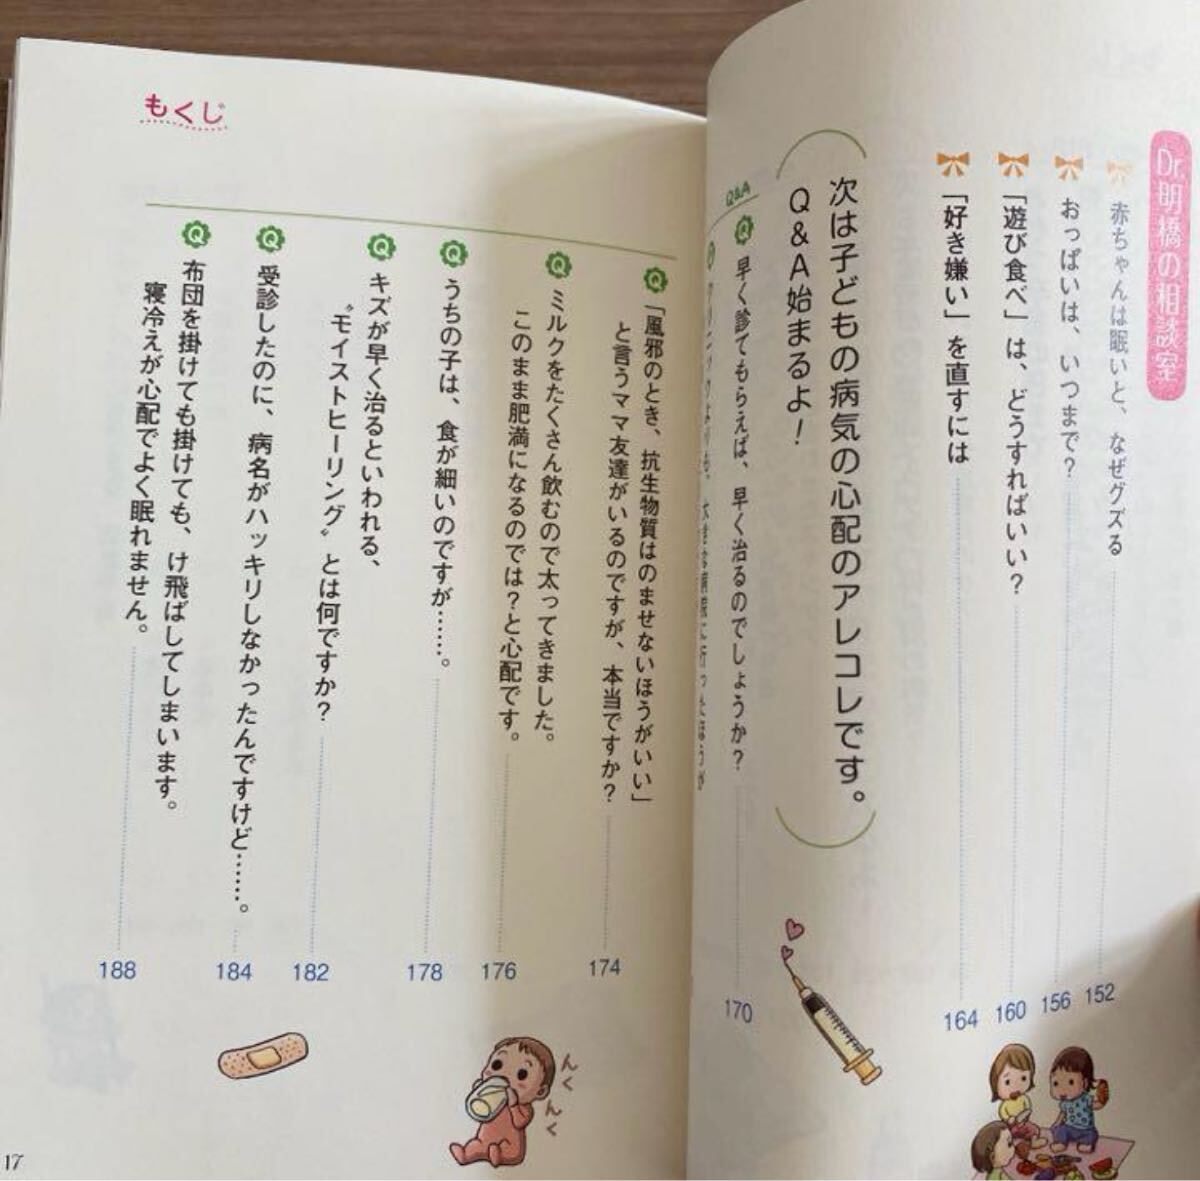 Dr.明橋の相談室
赤ちゃんは眠いと、なぜグズる
152
おっぱいは、いつまで？
156
「遊び食べ」は、どうすればいい？
160
「好き嫌い」を直すには
164
次は子どもの病気の心配のアレコレです。
Q＆A始まるよ！
Q&A
Q
早く診てもらえば、早く治るのでしょうか？
170
もくじ
Q
「風邪のとき、抗生物質はのませないほうがいい」
と言うママ友達がいるのですが、本当ですか？
174
Q
ミルクをたくさん飲むので太ってきました。
このまま肥満になるのでは？と心配です。
176
Q
うちの子は、食が細いのですが……。
178
Q
キズが早く治るといわれる、
〝モイストヒーリング〟とは何ですか？
182
Q
受診したのに、病名がハッキリしなかったんですけど……。
184
Q
布団を掛けても掛けても、け飛ばしてしまいます。
寝冷えが心配でよく眠れません。
188
んくんく
17